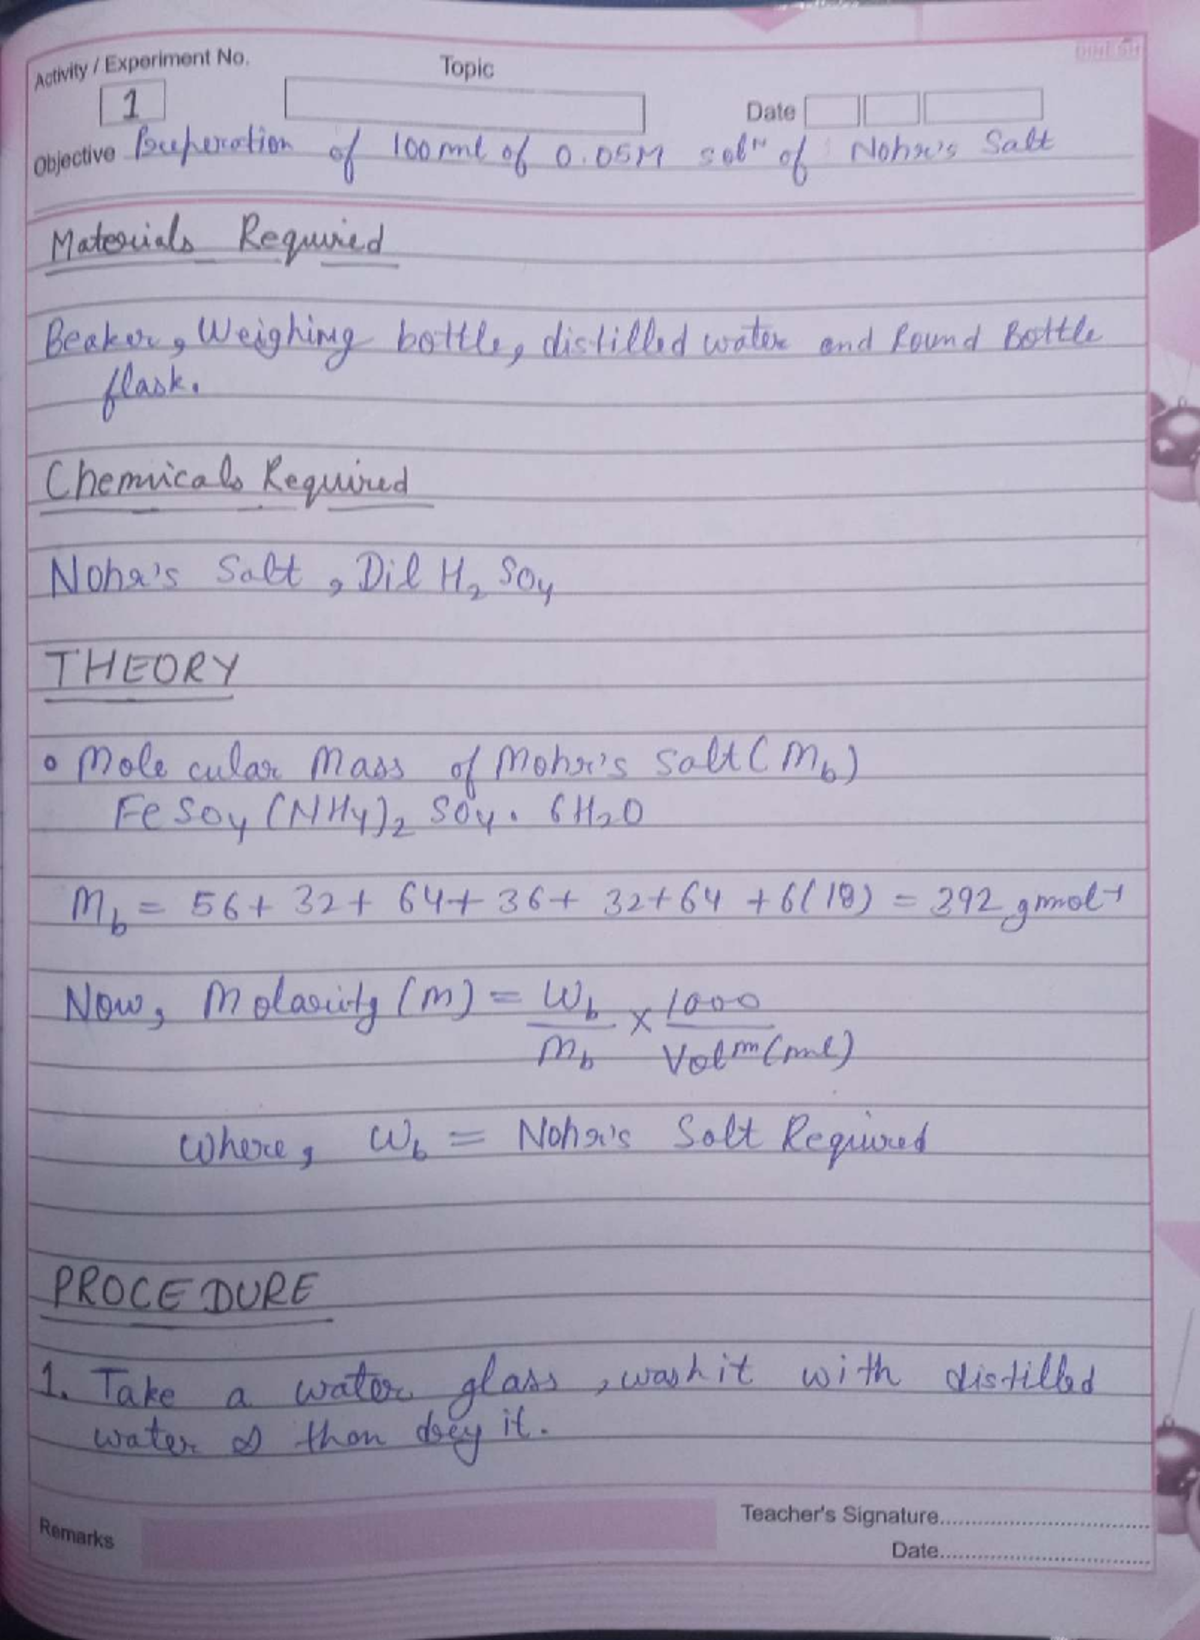 DINESH
Activity / Experiment No.
Topic
1
Date
Objective Preperation of 100 ml of 0.05M solⁿ of Nohr's Salt
Materials Required
Beaker, Weighing bottle, distilled water and Round Bottle
flask.
Chemicals Required
Nohr's Salt, Dil H₂SO₄
THEORY
• Molecular Mass of Mohr's Salt (Mb)
FeSO₄(NH₄)₂SO₄. 6H₂O
Mb = 56+ 32+ 64+ 36+ 32+64 +6(18) = 392 gmol⁻¹
Now, Molarity (M) = Wb/Mb × 1000/Volᵐ(ml)
Where, Wb = Nohr's Salt Required
PROCEDURE
1. Take a water glass, wash it with distilled
water & than dry it.
Remarks
Teacher's Signature
Date